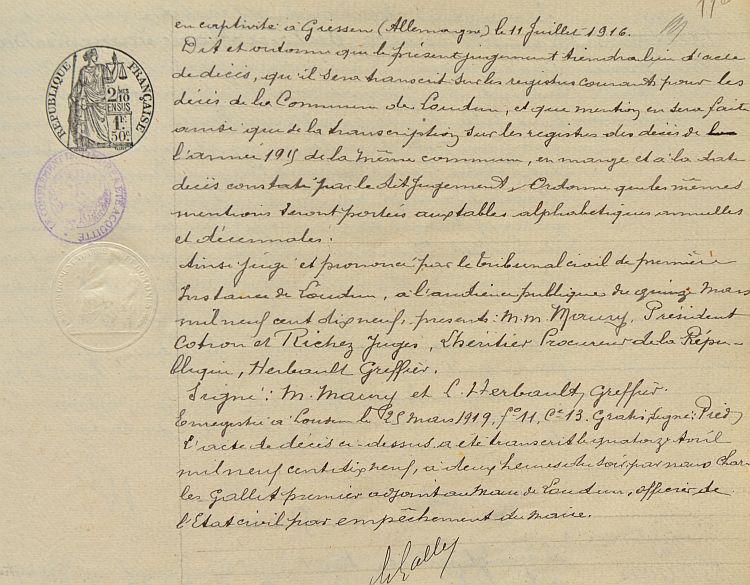 en captivité à Giessen (Allemagne) le 11 Juillet 1916.
Dit et ordonne que le présent jugement tiendra lieu d'acte
de décès, qu'il sera transcrit sur les registres courants pour les
décès de la Commune de Loudun, et que mention en sera faite
ainsi que de la transcription sur les registres des décès de
l'année 1915 de la même commune, en marge et à la date
décès constaté par le dit jugement, Ordonne que les mêmes
mentions seront portées aux tables alphabétiques annuelles
et décennales.
Ainsi jugé et prononcé par le tribunal civil de première
Instance de Loudun, à l'audience publique du quinze Mars
mil neuf cent dix neuf, présents: M.m. Maury, Président
Cotron et Richez Juges, Lhéritier Procureur de la Répu-
blique, Herbault Greffier.
Signé: M. Maury et C. Herbault, Greffier.
Enregistré à Loudun le 25 Mars 1919, fo 11, Ce 13. Gratis, Signé:
L'acte de décès ci-dessus a été transcrit le quatorze Avril
mil neuf cent dix neuf, à deux heures du soir, par nous Char-
les Gallet premier adjoint au Maire de Loudun, officier de
l'Etat civil par empêchement du Maire.
RÉPUBLIQUE FRANÇAISE
2/10
EN SUS
1F
50c